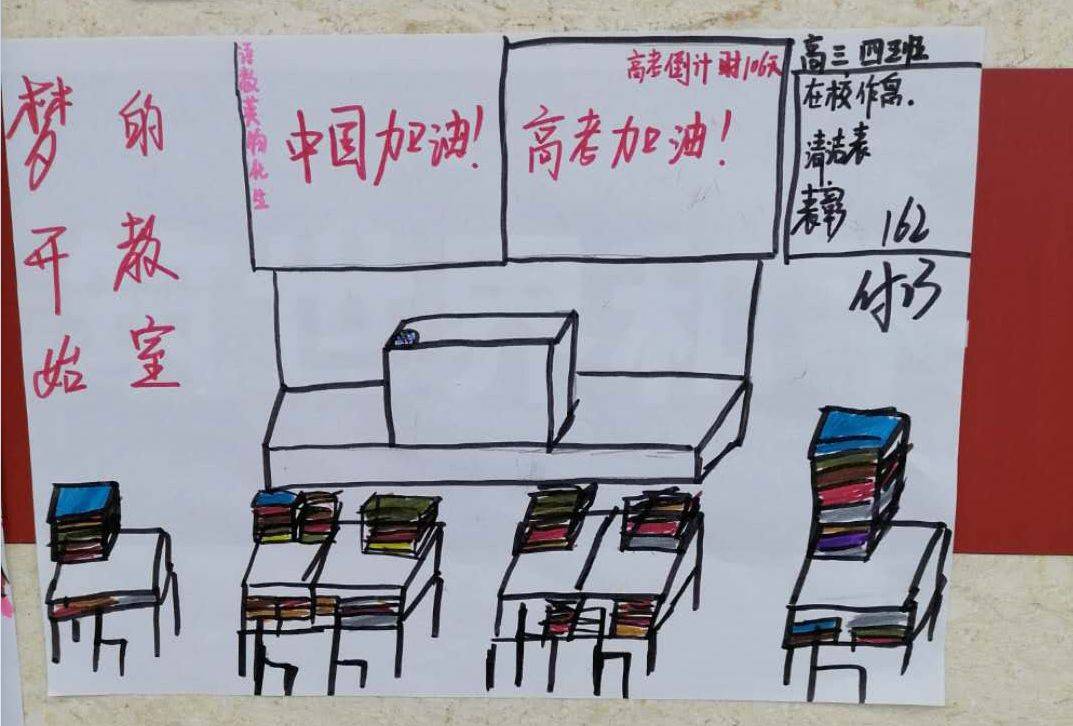 梦开始
的教室
语数英物化生
中国加油！
高考倒计时106天
高考加油！
高三 四班
在校作
清洁表
表彰
162